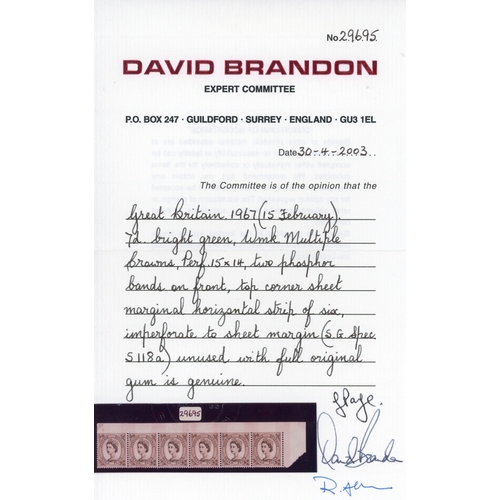 No 29695.
DAVID BRANDON
EXPERT COMMITTEE
P.O. BOX 247 · GUILDFORD · SURREY · ENGLAND · GU3 1EL
Date 30-4-2003..
The Committee is of the opinion that the
Great Britain 1967 (15 February).
7d. bright green, Wmk. Multiple
Crowns, Perf. 15x14, two phosphor
bands on front, top corner sheet
marginal horizontal strip of six,
imperforate to sheet margin (S.G. Spec.
S118a) unused with full original
gum is genuine.
29695
David Brandon